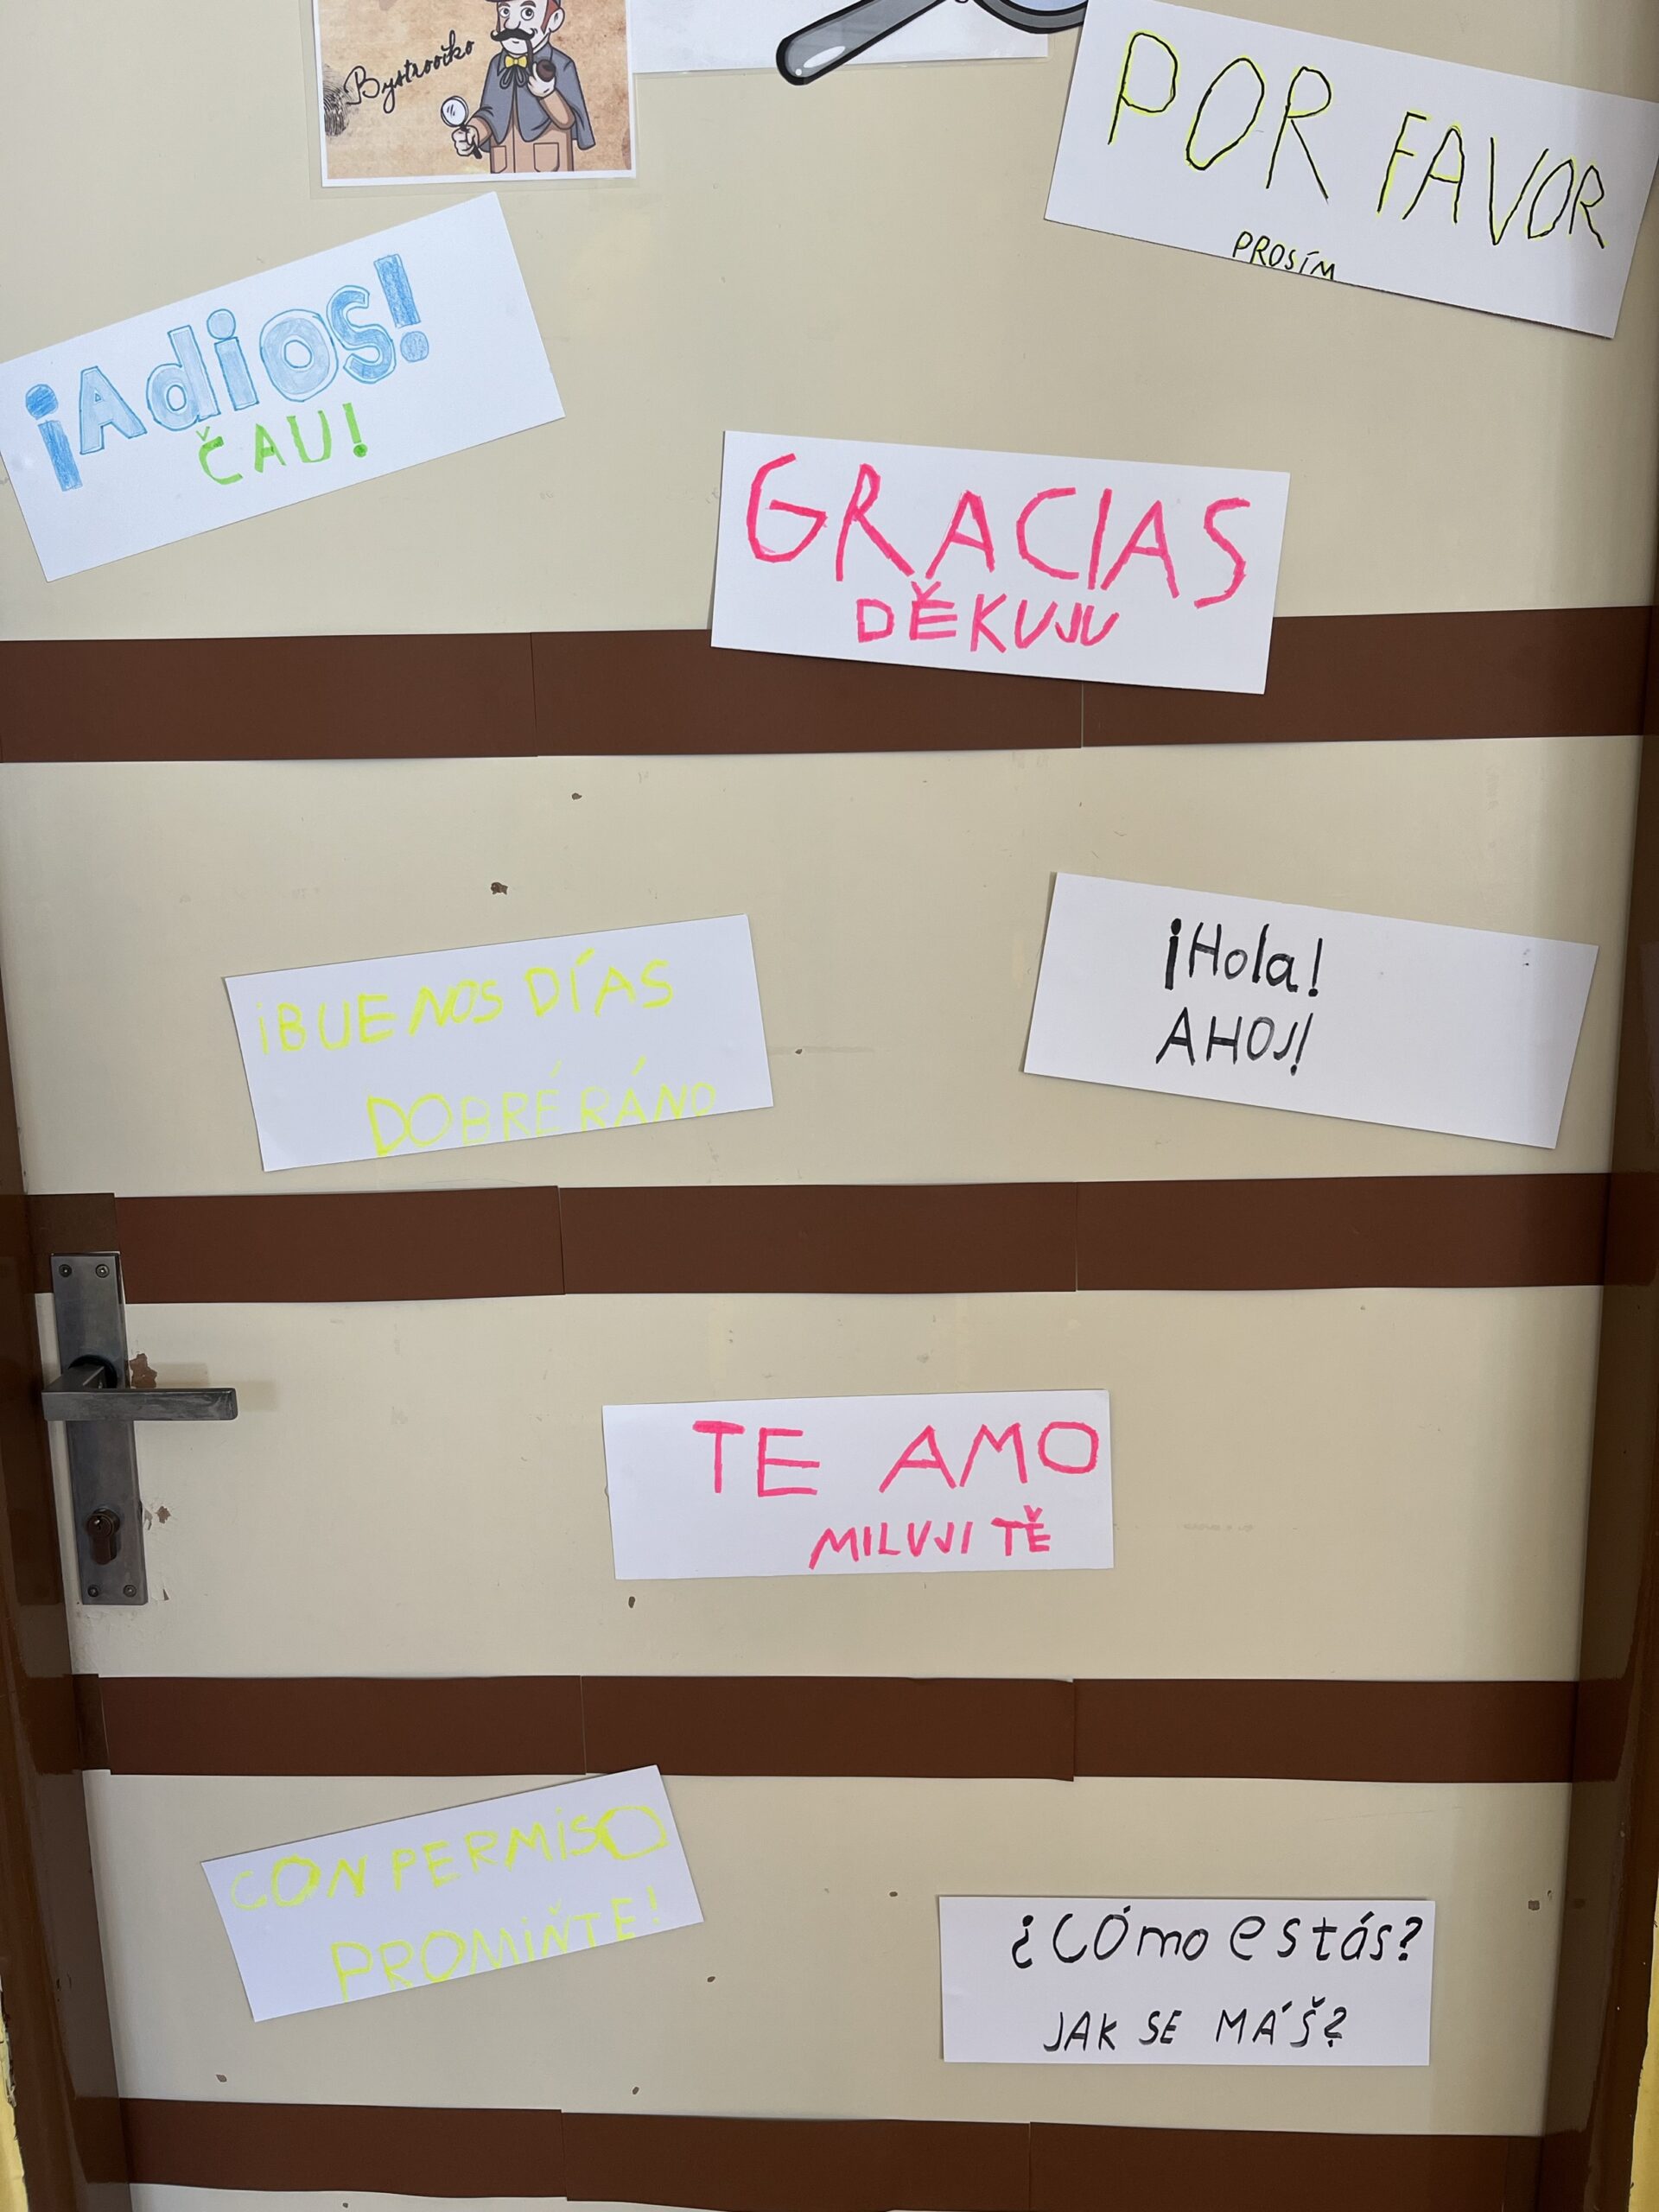 Bystroočko
POR FAVOR
PROSÍM
¡Adios!
ČAU!
GRACIAS
DĚKUJU
¡BUENOS DÍAS
DOBRÉ RÁNO
¡Hola!
AHOJ!
TE AMO
MILUJI TĚ
CON PERMISO
PROMIŇTE!
¿CÓmo estás?
JAK SE MÁŠ?